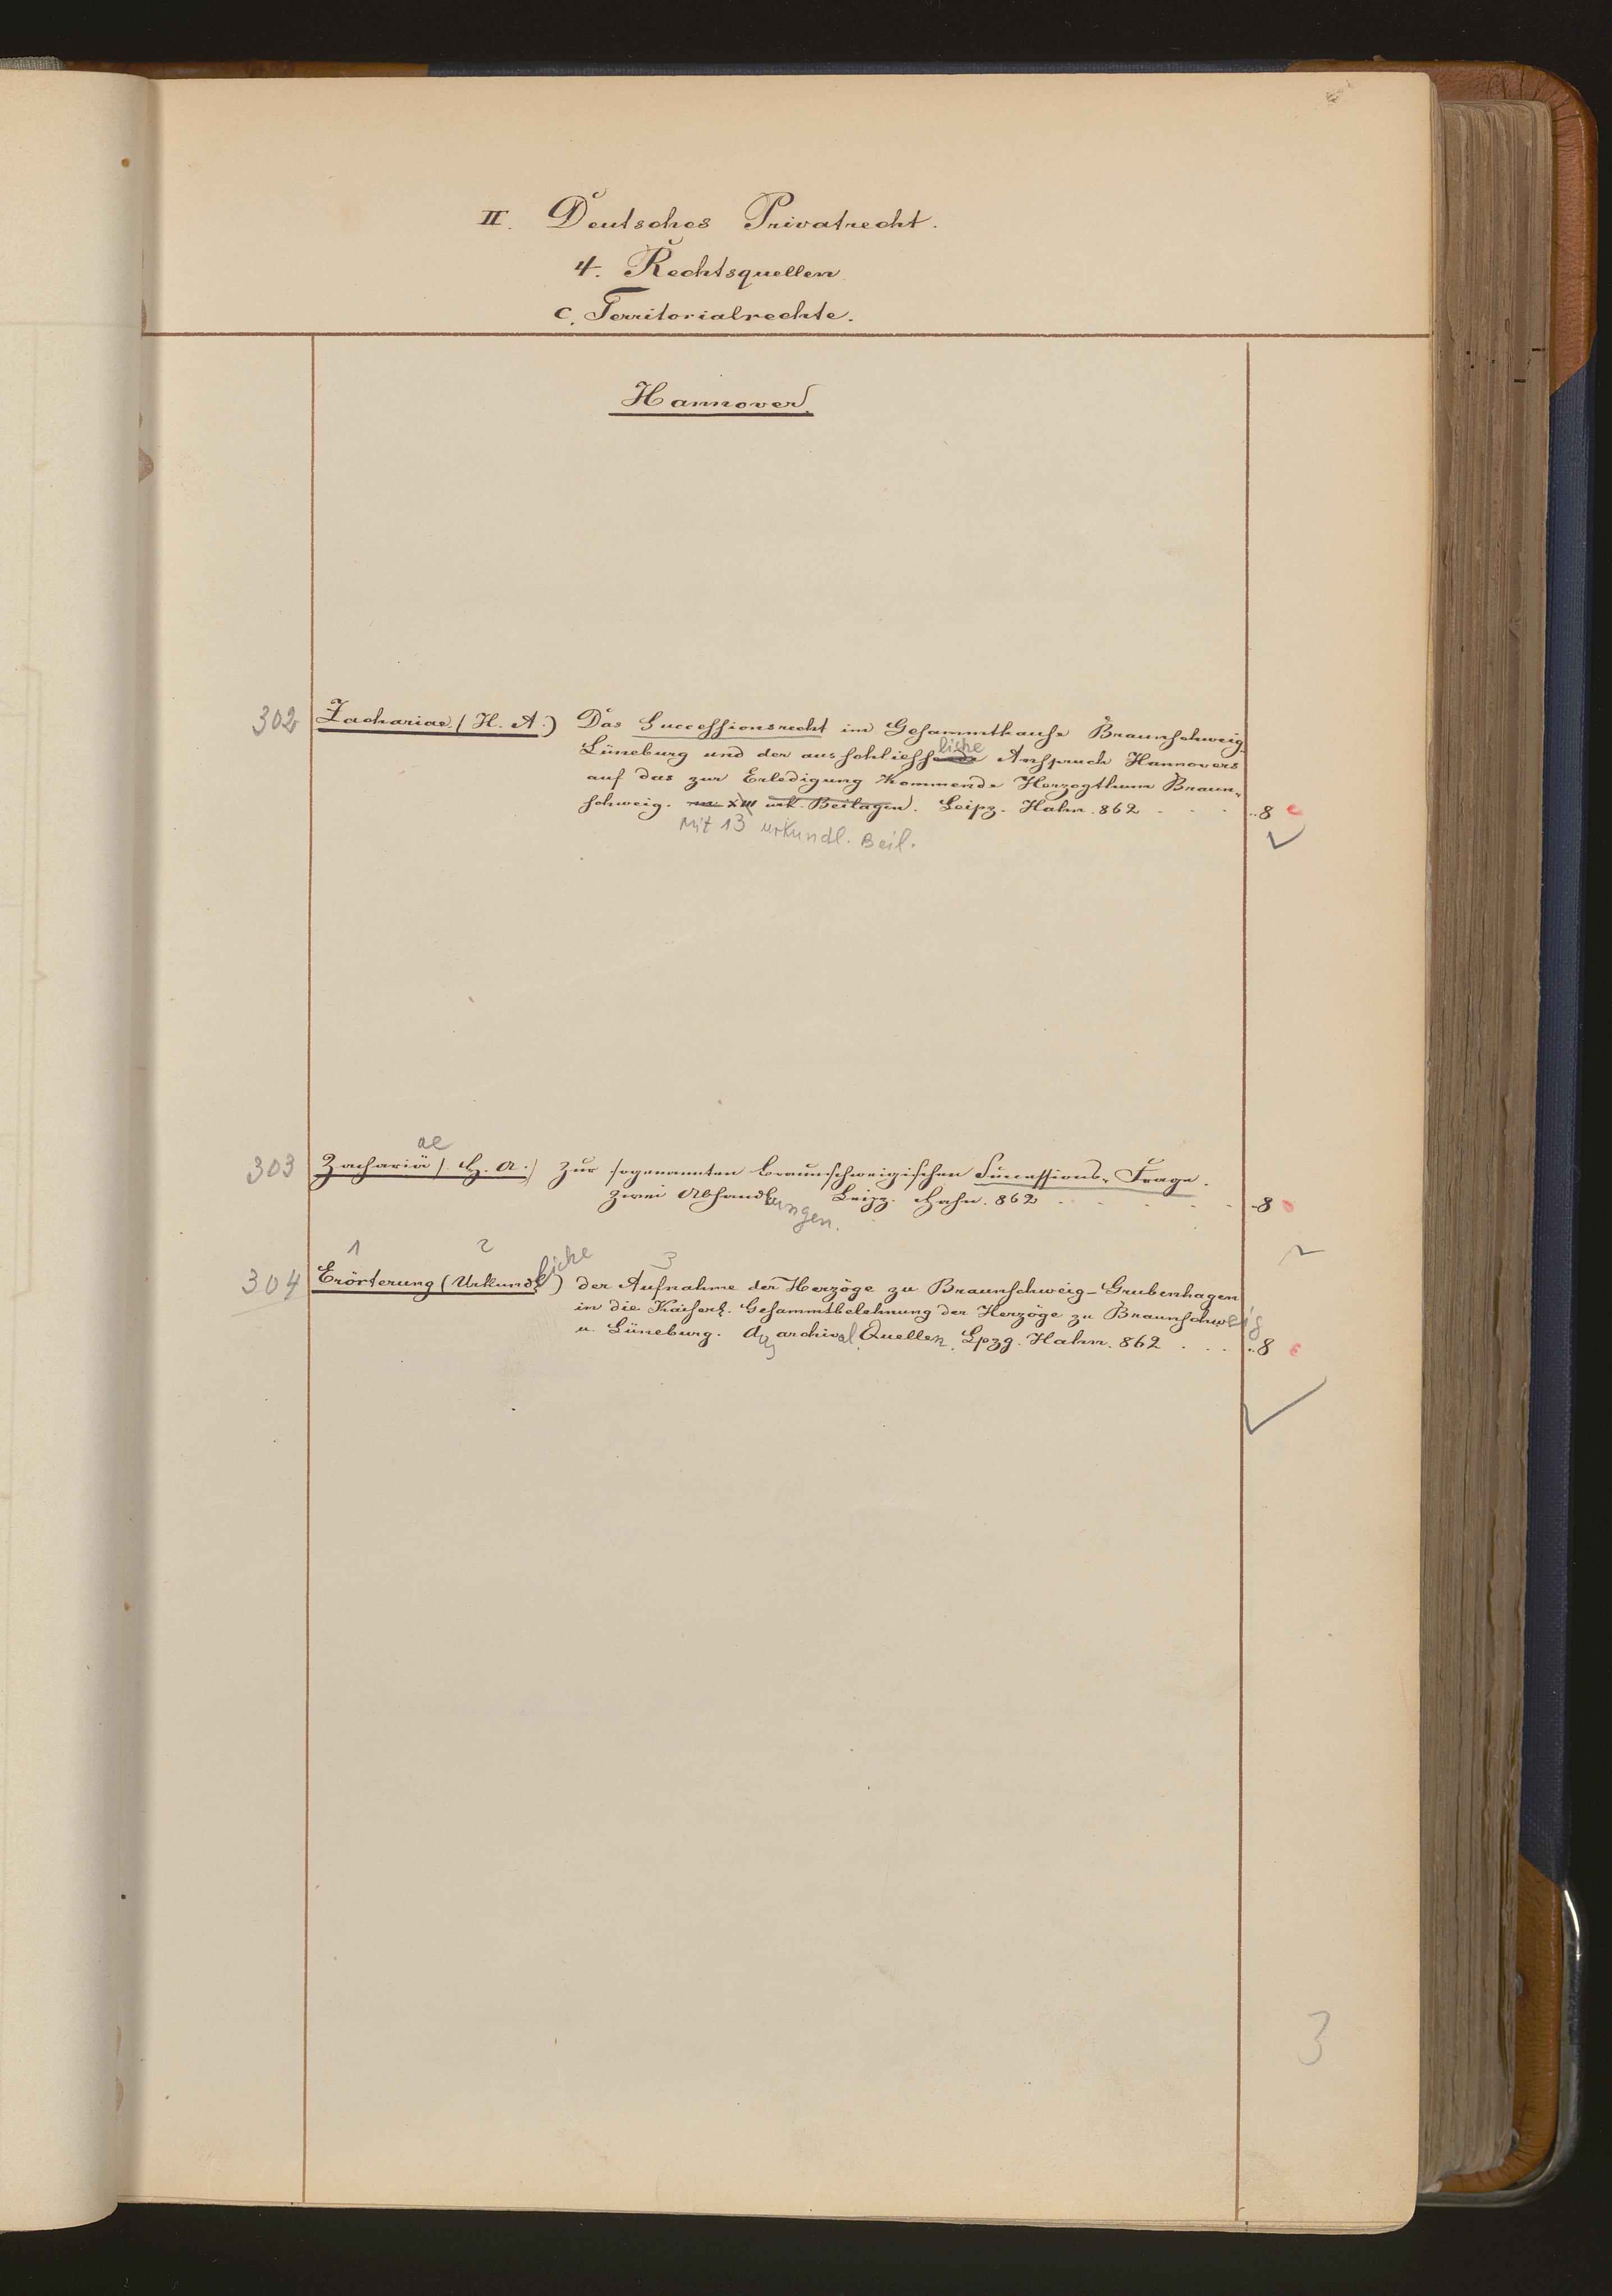 II. Deutsches Privatrecht.
4. Rechtsquellen
c. Territorialrechte.
Hannover.
302 Zachariae (H. A.) Das Successionsrecht im Gesammthause Braunschweig-
liche
Lüneburg und der ausschliessende Anspruch Hannovers
auf das zur Erledigung kommende Herzogthum Braun-
schweig. m. XIII urk. Beilagen. Leipz. Hahn. 862 8
Mit 13 urkundl. Beil.
ae
303 Zachariä (H. A.) Zur sogenannten braunschweigischen Successions-Frage.
Zwei Abhandlungen. Leipz. Hahn. 862 8
1 2 3
304 Erörterung (Urkundliche) der Aufnahme der Herzöge zu Braunschweig-Grubenhagen
in die Kaiserl. Gesammtbelehnung der Herzöge zu Braunschweig
u. Lüneburg. Aus archival. Quellen. Lpzg. Hahn. 862 8
3